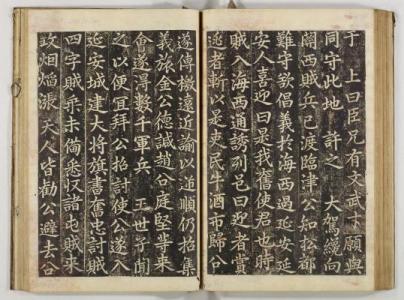 于 上曰臣兄有文武才願與
同守此地 許之 大駕纔向
關西賊兵已渡臨津公知松都
難守欲倡義於海西過延安延
安人喜迎曰是我舊使君也時
賊入海西通誘列邑曰迎者賞
逃者斬以是吏民牛酒布歸公
遂傳檄遠近諭以逆順仍招集
義旅金公德諴趙公庭堅等來
會遂得數千軍兵 王世子聞
之以便宜拜公招討使公遂入
延安城建大將旗書奮忠討賊
四字賊乘未備悉収諸屯賊來
攻烟焰漲天人皆勸公避去公